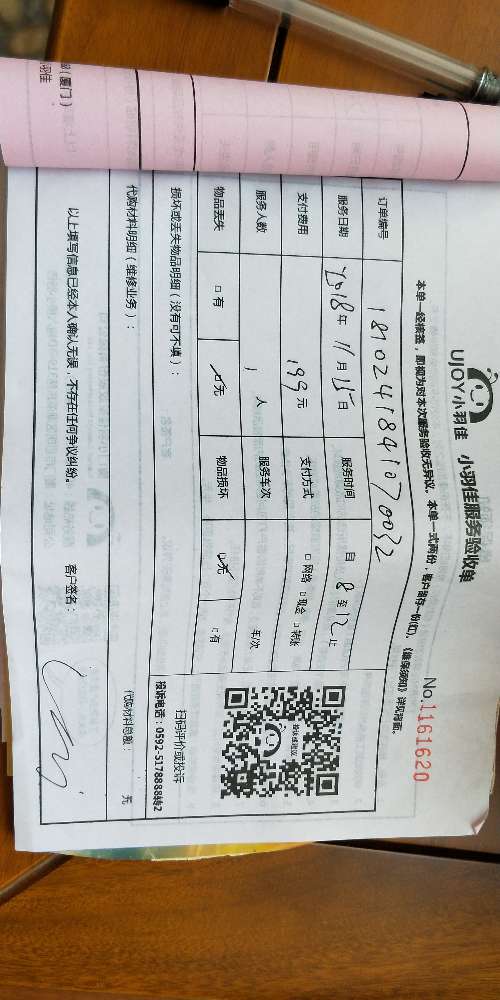 UJOY小羽佳 小羽佳服务验收单
No.1161620
本单一经核签，即视为对本次服务验收无异议。本单一式两份，客户留存一份(红)。《维保须知》详见背面。
订单编号 1810241841070032
服务日期 2018年 11月15日 服务时间 自 8 至 12 止
支付费用 199元 支付方式 □网络 □现金 □转账
服务人数 1 人 服务车次 车/次
物品丢失 □有 ☑无 物品损坏 ☑无 □有
损坏或丢失物品明细（没有可不填）：
扫码评价或投诉
投诉电话：0592-5178888转2
代购材料明细（维修业务）：
代购材料总额： 元
以上填写信息已经本人确认无误，不存在任何争议纠纷。 客户签名：
（厦门）
羽佳